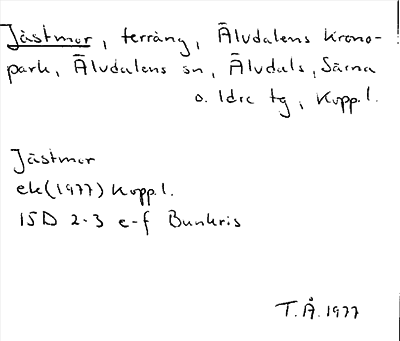 Jästmor, terräng, Älvdalens krono-
park, Älvdalens sn, Älvdals, Särna
o. Idre tg, Kopp.l.
Jästmor
ek (1977) Kopp.l.
15D 2-3 e-f Bunkris
T.Å. 1977